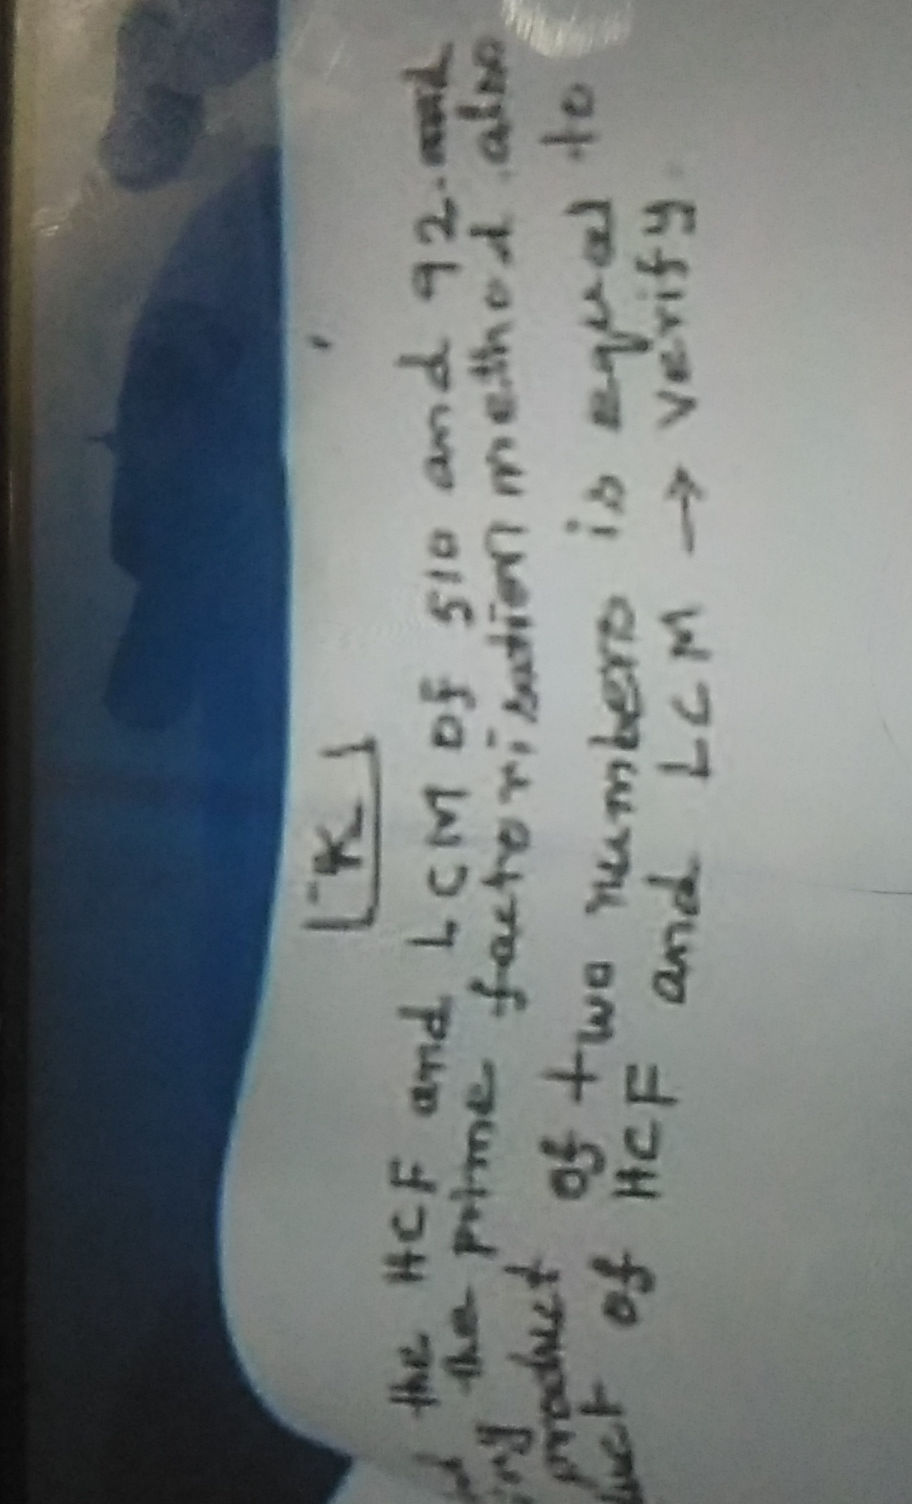 K
the HCF and LCM of 510 and 92
the prime factorisation method also
product of two numbers is equal to
of HCF and LCM → verify.